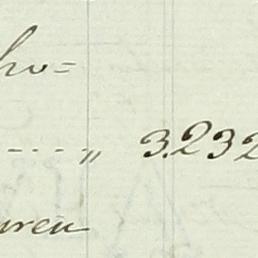 ho=
---- „ 3.232
uren